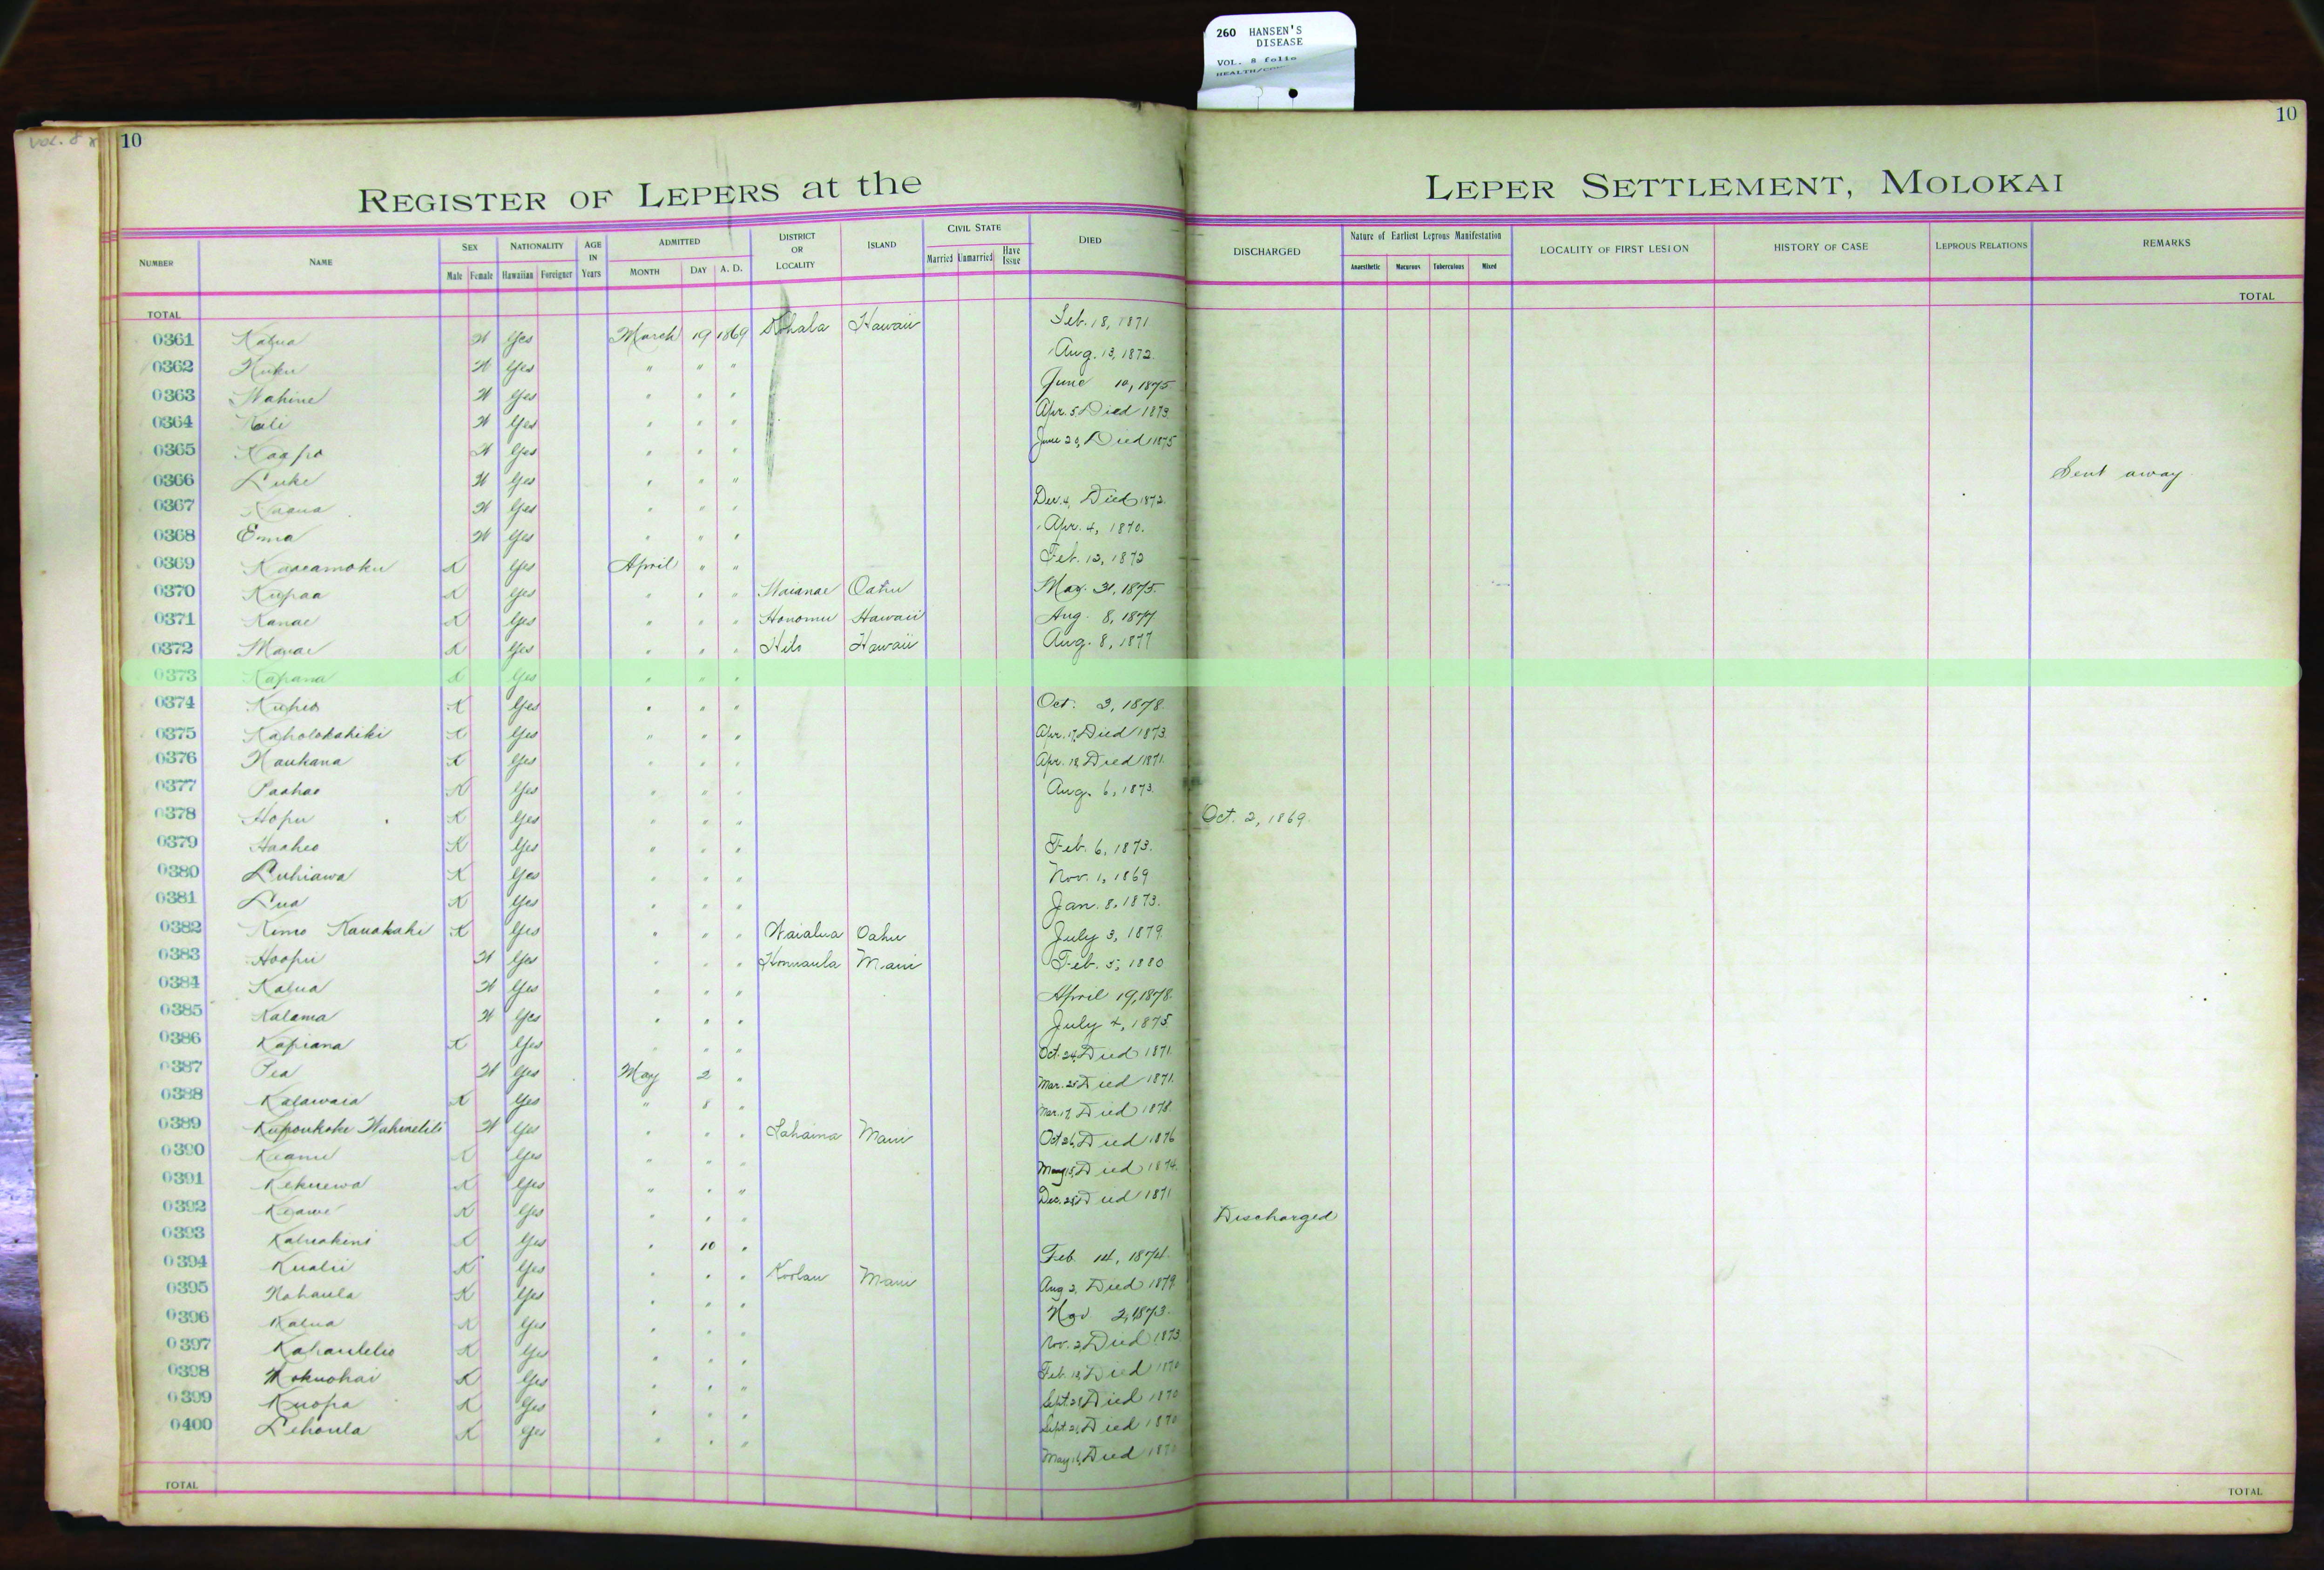 260 HANSEN'S
DISEASE
VOL. 8 folio
VOL. 8
10
10
REGISTER OF LEPERS at the LEPER SETTLEMENT, MOLOKAI
NUMBER NAME SEX Male Female NATIONALITY Hawaiian Foreigner AGE IN Years ADMITTED MONTH DAY A. D. DISTRICT OR LOCALITY ISLAND CIVIL STATE Married Unmarried Have Issue DIED DISCHARGED Nature of Earliest Leprous Manifestation Anaesthetic Macurous Tuberculous Mixed LOCALITY OF FIRST LESION HISTORY OF CASE LEPROUS RELATIONS REMARKS
TOTAL TOTAL
0361 Kalua W Yes March 19 1869 Kohala Hawaii Feb. 18, 1871
0362 W Yes " " " Aug. 13, 1872.
0363 Wahine W Yes " " " June 10, 1875
0364 W Yes " " " Apr. 5 Died 1873.
0365 Kaapo W Yes " " " June 29, Died 1875
0366 Luke W Yes " " " Sent away
0367 W Yes " " " Dec. 4, Died 1872.
0368 Emma W Yes " " " Apr. 4, 1870.
0369 Kaaeamoku K Yes April " " Feb. 12, 1872
0370 Kupaa K Yes " " " Waianae Oahu May. 31, 1875.
0371 Kanae K Yes " " " Honomu Hawaii Aug. 8, 1877
0372 K Yes " " " Hilo Hawaii Aug. 8, 1877
0373 Kapana K Yes " " "
0374 Kuheo K Yes " " " Oct. 3, 1878.
0375 Kaholokahiki K Yes " " " Apr. 17, Died 1873.
0376 Naukana K Yes " " " Apr. 18 Died 1871.
0377 Paahao K Yes " " " Aug. 6, 1873.
0378 Hopu K Yes " " " Oct. 2, 1869.
0379 Haaheo K Yes " " " Feb. 6, 1873.
0380 Luhiawa K Yes " " " Nov. 1, 1869
0381 Lua K Yes " " " Jan. 8, 1873.
0382 Kimo Kauakahi K Yes " " " Waialua Oahu July 3, 1879.
0383 Hoopii W Yes " " " Honuaula Maui Feb. 5, 1880
0384 Kalua W Yes " " " April 19, 1878.
0385 Kalama W Yes " " " July 4, 1875.
0386 Kapiana K Yes " " " Oct. 24, Died 1871.
0387 Pea W Yes May 2 " Mar. 25 Died 1871.
0388 Kalawaia K Yes " 8 " Mar. 17, Died 1878.
0389 W Yes " " " Lahaina Maui Oct 26, Died 1876
0390 Keanu K Yes " " " May 15, Died 1874.
0391 Kekuewa K Yes " " " Died 1871
0392 Keawe K Yes " " " Discharged
0393 Kaluakini K Yes " 10 " Feb. 14, 1874.
0394 Kualii K Yes " " " Koolau Maui Aug 2, Died 1879.
0395 Nahaula K Yes " " " Nov 2, 1873.
0396 Kalua K Yes " " " Nov. 2, Died 1873
0397 K Yes " " " Died 1870
0398 Mokuohai K Yes " " " Died 1870
0399 Kuopa K Yes " " " Died 1870
0400 Lehoula K Yes " " " Died 1870
TOTAL TOTAL